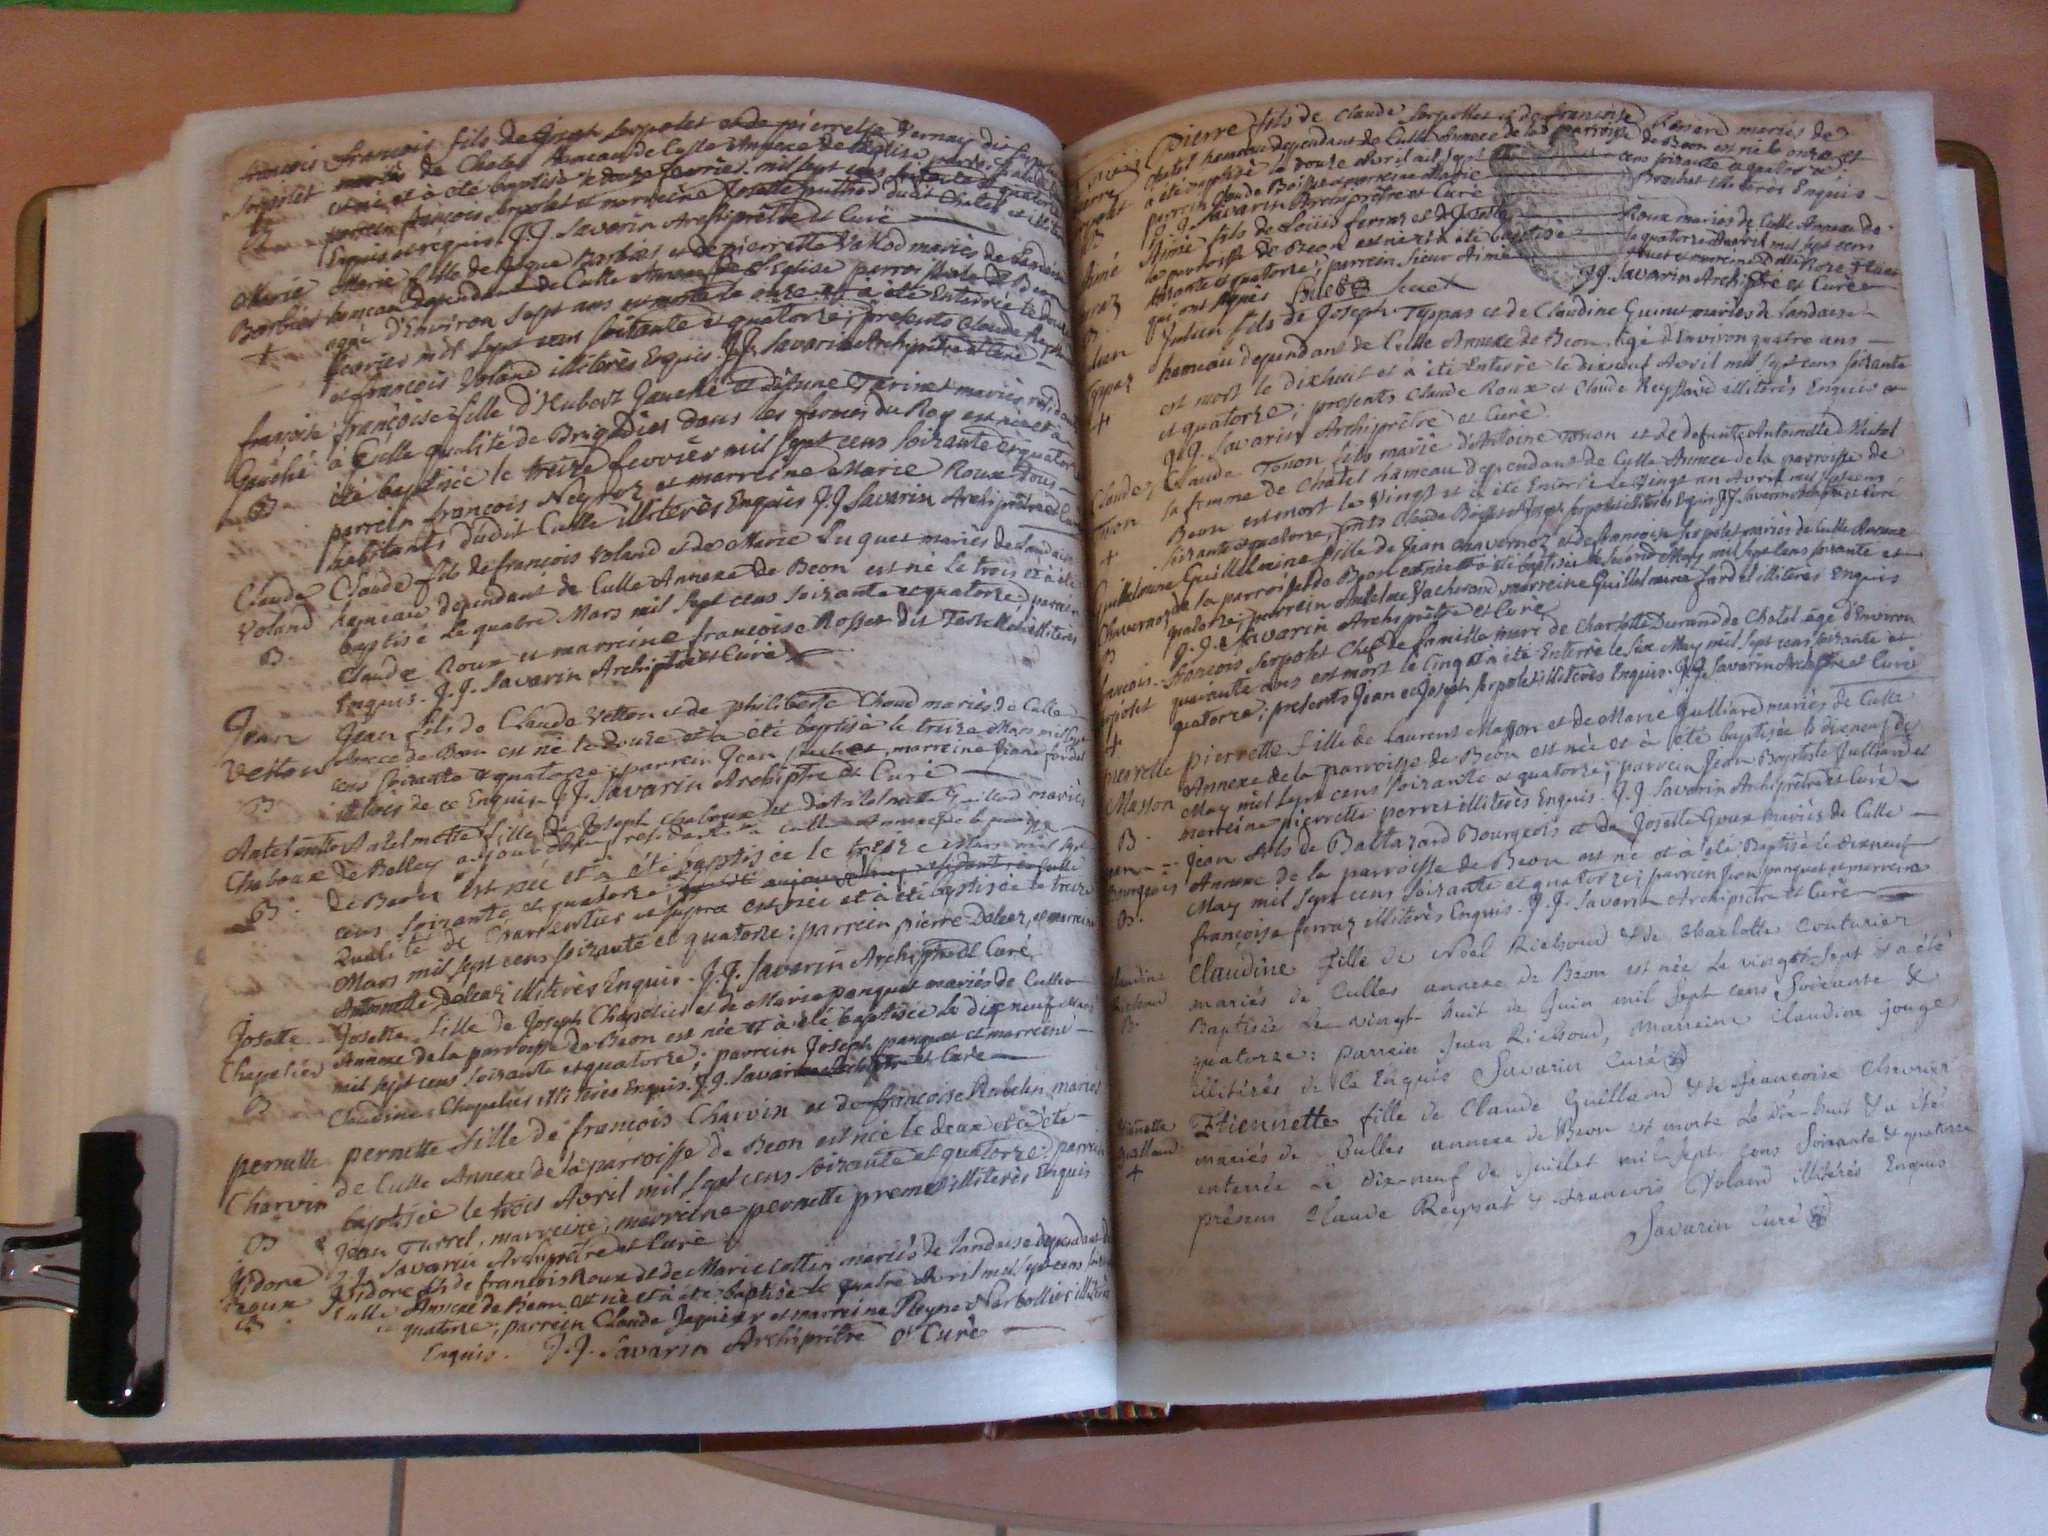 françois françois fils de Joseph Serpolet et de pierrette Vernay dit
Serpolet mariés de Chatel hameau de Culle Annexe de l'Eglise
est né et à été baptisé le douze fevrier mil sept cens soixante et quatorze
parrein françois Serpolet et marreine Josette duit Chatel et
Enquis et réquis. J.J. Savarin Archiprêtre et Curé
Marie Marie fille de Barbier et de pierrette Vallod mariés de Landaise
Barbier hameau dependant de Culle Annexe de l'Eglise parroissiale de Beon
+ agée d'Environ sept ans est morte le onze et à été Enterrée le douze
fevrier mil sept cens soixante et quatorze; presents Claude
et françois Voland illiterés Enquis. J.J. Savarin Archiprêtre et Curé
françoise françoise fille d'Hubert Gauché et Tarinet mariés residants
Gauché à Culle qualité de Brigadier dans les fermes du Roy est née et à
B été baptisée le treize fevrier mil sept cens soixante et quatorze
parrein françois Neyroz et marreine Marie Roux tous
habitants dudit Culle illiterés Enquis J.J. Savarin Archiprêtre et Curé
Claude Claude fils de françois Voland et de Marie Luquet mariés de Landaise
Voland hameau dependant de Culle Annexe de Beon est né le trois et à été
B. baptisé le quatre Mars mil sept cens soixante et quatorze, parrein
Claude Roux et marreine françoise Rosset dit illiterés
Enquis. J.J. Savarin Archiptre et Curé
Jean Jean fils de Claude Vetton et de philiberte Chaud mariés de Culle
Vetton Annexe de Beon est né le douze et à été baptisé le treize Mars mil sept
B cens soixante et quatorze; parrein Jean marreine fardel
illitéres de ce Enquis J.J. Savarin Archiptre et Curé
Antelmette Antelmette fille de Joseph Chaboux et d'Antelmette Gaillod mariés
Chaboux de Belley aujourd'hui residants à Culle Annexe de la parroisse
B. de Beon est née et à été baptisée le treize Mars mil sept
cens soixante et quatorze; aujourd'huy residant en Culle
Qualité de Charpentier ut supra est née et à été baptisée le treize
Mars mil sept cens soixante et quatorze: parrein pierre et marreine
Antoinette illitérés Enquis. J.J. Savarin Archiptre et Curé
Josette Josette fille de Joseph Chapelier et de Marie panquet mariés de Culle
Chapelier Annexe de la parroisse de Beon est née et à été baptisée le dix neuf Mars
B mil sept cens soixante et quatorze. parrein Joseph panquet et marreine
Claudine Chapelier illiterés Enquis. J.J. Savarin Archiptre et Curé
pernette pernette fille de francois Charvin et de françoise Robelin mariés
Charvin de Culle Annexe de la parroisse de Beon est née le deux et à été
B baptisée le trois Avril mil sept cens soixante et quatorze; parrein
Jean Turrel, marreine, marreine pernette illiterés Enquis
J.J. Savarin Archiprêtre et Curé
Isidore Isidore fils de françois Roux et de Marie Collin mariés de Landaise dependant de
Roux Culle Annexe de Beon est né et à été baptisé le quatre Avril mil sept cens soixante
B. quatorze; parrein Claude et marreine
Enquis. J.J. Savarin Archiprêtre et Curé
Pierre fils de Claude Serpollet et de françoise mariés de
Chatel hameau dependant de Culle Annexe de la parroisse de Beon est né le onze et
à été baptisé le douze Avril mil sept cens soixante et quatorze
parrein Claude et marreine Marie Brachet illiterés Enquis
J.J. Savarin Archiprêtre et Curé
Aimé Aimé fils de Loüis ferraz et de Josette Roux mariés de Culle Annexe de
la parroisse de Beon est né et à été baptisé le quatorze Avril mil sept cens
soixante et quatorze; parrein sieur Aimé Huet et marreine
B. qui ont signés Huet J.J. Savarin Archiptré et Curé
Julien fils de Joseph Typpaz et de Claudine mariés de Landaise
Typpaz hameau dependant de Culle Annexe de Beon agé d'Environ quatre ans
+ est mort le dixhuit et à été Enterré le dixneuf Avril mil sept cens soixante
et quatorze; presents Claude Roux et Claude Reyssard illiterés Enquis
J.J. Savarin Archiprêtre et Curé
Claude Claude Tonon fils marié d'Antoine Tonon et de defunte Antoinette
Tonon sa femme de Chatel hameau dependant de Culle Annexe de la parroisse de
+ Beon est mort le Vingt et à été Enterré le Vingt un Avril mil sept cens
soixante et quatorze, Claude Serpolet illiterés Enquis J.J. Savarin Archiptre et Curé
Guillelmine Guillelmine fille de Jean Chavernoz et de françoise Serpolet mariés de Culle Annexe
Chavernoz de la parroisse de Beon est née et à été baptisée le May mil sept cens soixante et
B quatorze; parrein Antelme Vacherand marreine Guillelmine fardel illiterés Enquis
J.J. Savarin Archiprêtre et Curé
françois françois Serpolet Chef de famille mari de Charlotte Durand de Chatel agé d'Environ
Serpolet quarante ans est mort le Cinq et à été Enterré le Six May mil sept cens soixante et
+ quatorze; presents Jean et Joseph Serpolet illiterés Enquis. J.J. Savarin Archiptre et Curé
pierrette pierrette fille de Laurent Masson et de Marie Julliard mariés de Culle
Masson Annexe de la parroisse de Beon est née et à été baptisée le dixneuf de
B. May mil sept cens soixante et quatorze; parrein Jean Baptiste Julliard et
marreine pierrette illiterés Enquis. J.J. Savarin Archiprêtre et Curé
Jean Jean fils de Baltazard Bourgeois et de Josette Goux mariés de Culle
Bourgeois Annexe de la parroisse de Beon est né et à été Baptisé le dixneuf
B. May mil sept cens soixante et quatorze; parrein Jean panquet et marreine
françoise ferraz illiterés Enquis. J.J. Savarin Archiptre et Curé
Claudine Claudine fille de Noël Richoud & de Charlotte Couturier
Richoud mariés de Culles annexe de Beon est née le vingt-sept & a été
B. Baptisée le vingt-huit de Juin mil Sept cens Soixante &
quatorze: parrein Jean Richoud, marreine Claudine
illitérés de ce Enquis Savarin Curé
Etiennette Etiennette fille de Claude Guilland & de françoise Chevrier
Guilland mariés de Culles annexe de Beon est morte le dix-huit & a été
+ enterrée le dix-neuf de Juillet mil sept cens Soixante & quatorze
présens Claude Reyssat & francois Voland illitérés Enquis
Savarin Curé